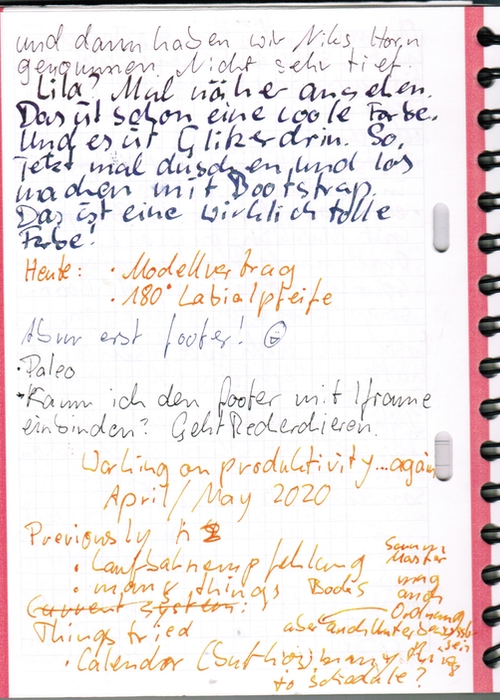 und dann haben wir Nils Horn
genommen. Nicht sehr tief.
Lila? Mal näher ansehen.
Das ist schon eine coole Farbe.
Und es ist Glitzer drin. So,
jetzt mal duschen und los
machen mit Bootstrap.
Das ist eine wirklich tolle
Farbe!
Heute: · Modellvertrag
· 180° Labialpfeife
Aber erst footer!
· Paleo
· Kann ich den footer mit Iframe
einbinden? Geht Recherchieren.
Working on produktivity...again
April/May 2020
Previously
· Laufbahnempfehlung
· many things Books
Current system:
Things tried
· Calendar
to schedule?
Master
mag
auch
Ordnung
aber auch Unterbewusst
sein